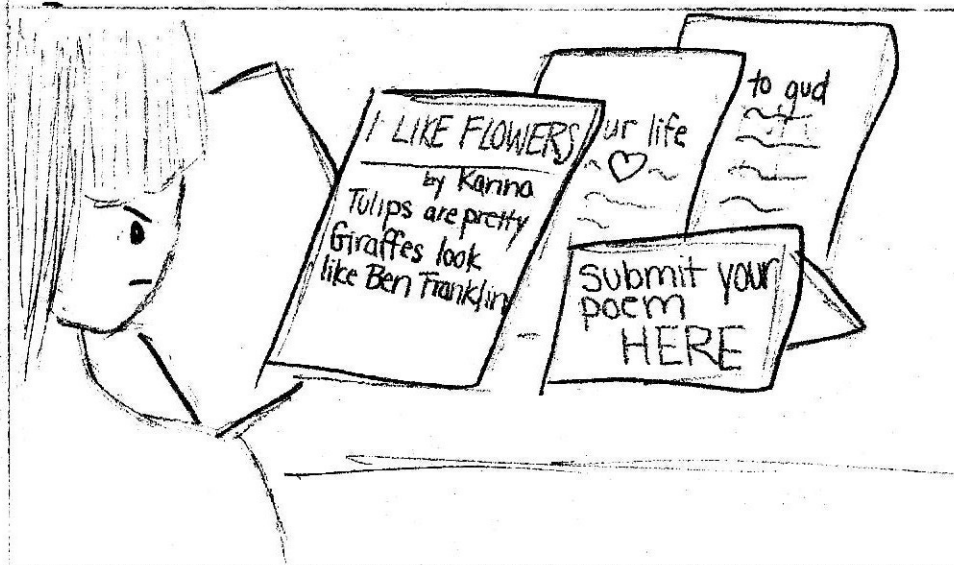 I LIKE FLOWERS
by Karina
Tulips are pretty
Giraffes look
like Ben Franklin
ur life
to gud
submit your
poem
HERE